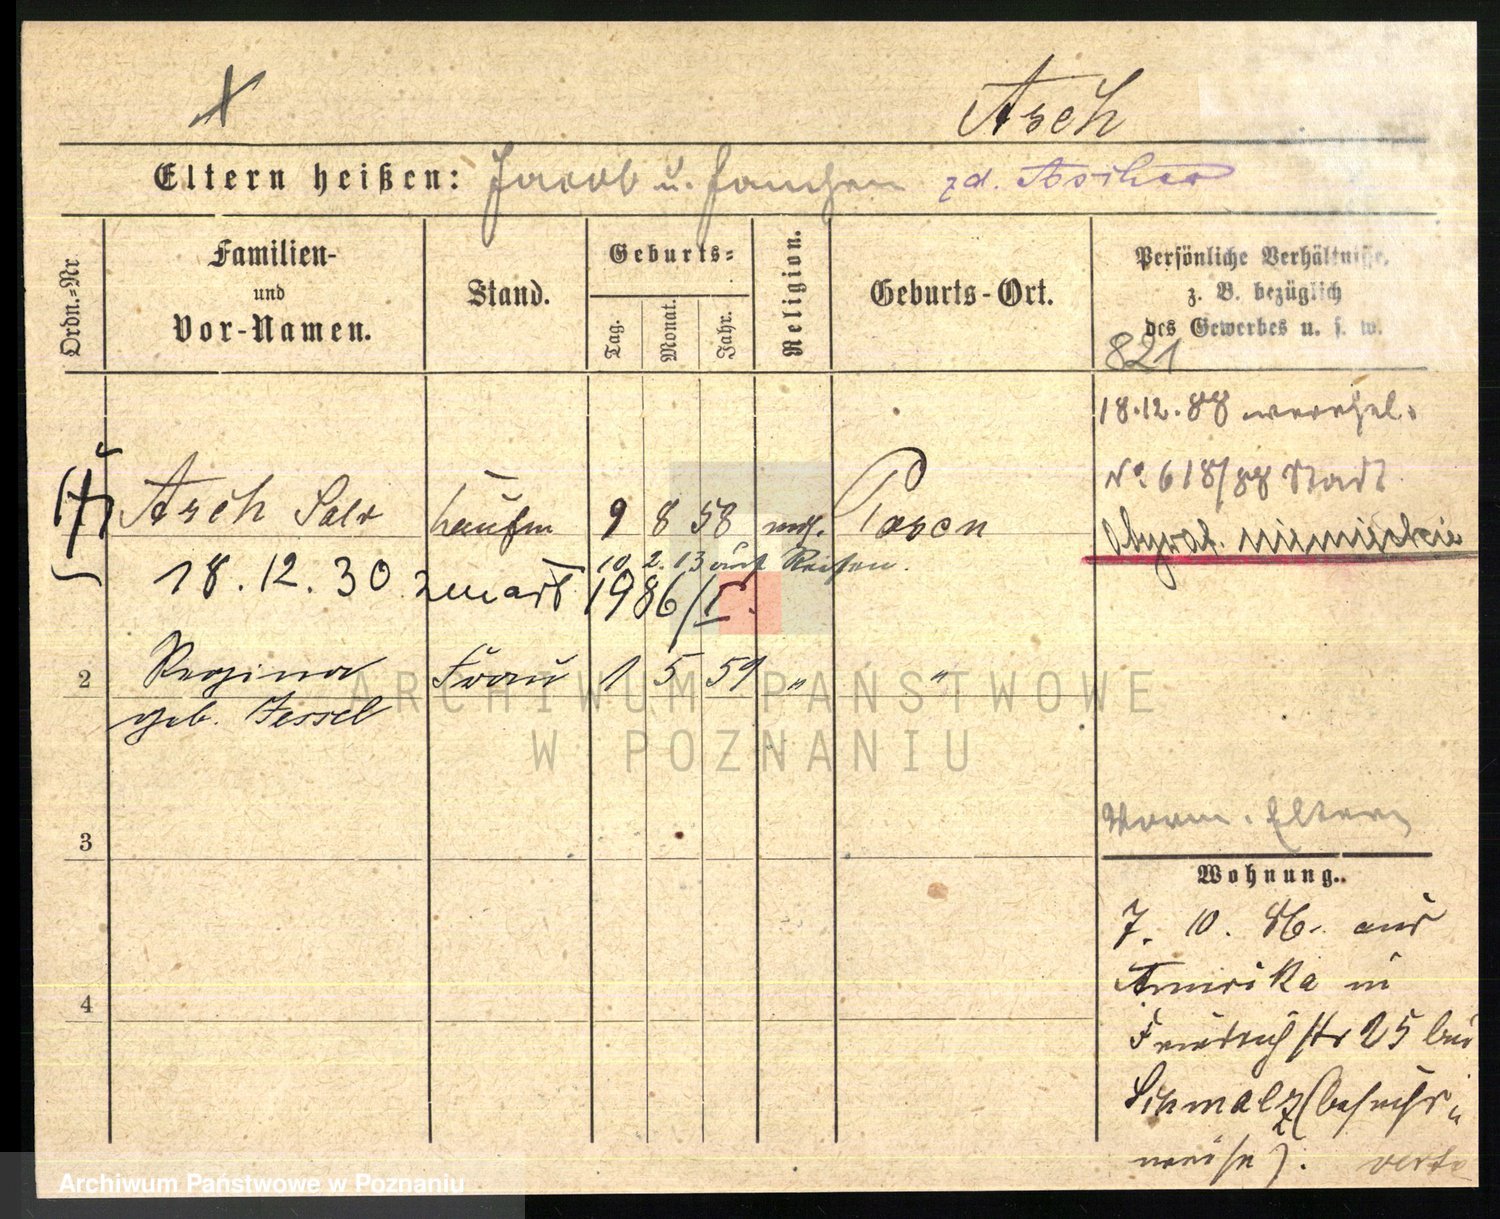 Asch
Eltern heißen: Jacob u. Hanchen zd. Ascher
Ordn.-Nr
Familien-
und
Vor-Namen.
Stand.
Geburts-
Tag.
Monat.
Jahr.
Religion.
Geburts-Ort.
Persönliche Verhältnisse,
z. B. bezüglich
des Gewerbes u. s. w.
821
18.12.88
No. 618/88 Stadt
Obywat. niemieckie
Asch Salo Kaufm 9 8 58 mos. Posen
10 2. 13 auf Reisen.
18.12.30 zmarł 1986/I.
2 Regina Frau 1 5 59 " "
geb. Jessel
3
Eltern
Wohnung.
7. 10. 86. aus
Amerika in
Friedrichstr 25 bei
Schmalz (besuchs-
weise). verte
4
ARCHIWUM PAŃSTWOWE
W POZNANIU
Archiwum Państwowe w Poznaniu